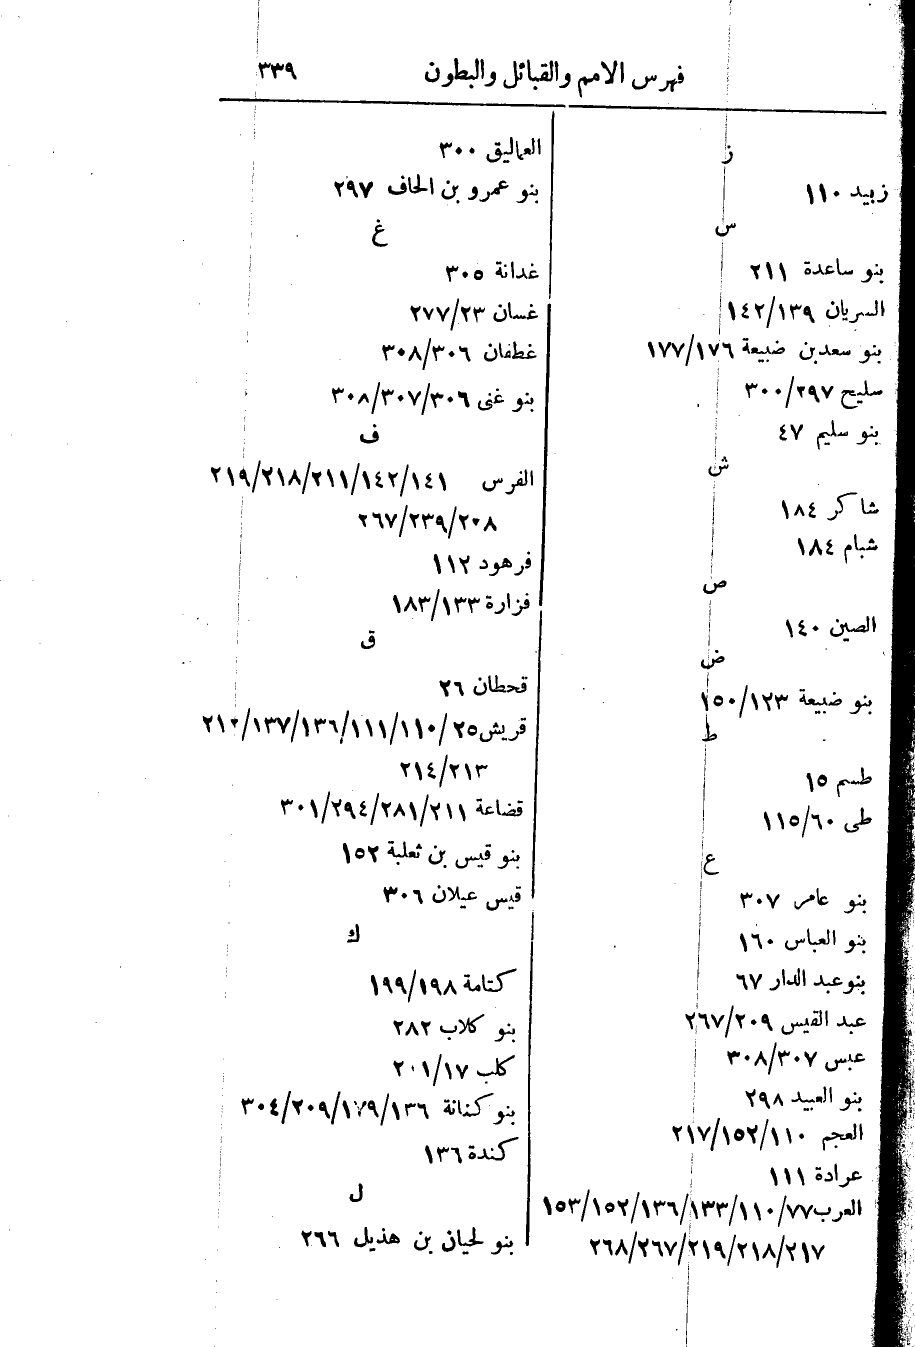 فهرس الامم والقبائل والبطون ٣٣٩
ز
زبيد ١١٠
س
بنو ساعدة ٢١١
السريان ١٣٩/١٤٢
بنو سعد بن ضبيعة ١٧٦/١٧٧
سليح ٢٩٧/٣٠٠
بنو سليم ٤٧
ش
شاكر ١٨٤
شبام ١٨٤
ص
الصين ١٤٠
ض
بنو ضبيعة ١٢٣/١٥٠
ط
طسم ١٥
طى ٦٠/١١٥
ع
بنو عامر ٣٠٧
بنو العباس ١٦٠
بنو عبد الدار ٦٧
عبد القيس ٢٠٩/٢٦٧
عبس ٣٠٧/٣٠٨
بنو العبيد ٢٩٨
العجم ١١٠/١٥٢/٢١٧
عرادة ١١١
العرب ٧٧/١١٠/١٣٣/١٣٦/١٥٢/١٥٣
٢١٧/٢١٨/٢١٩/٢٦٧/٢٦٨
العماليق ٣٠٠
بنو عمرو بن الحاف ٢٩٧
غ
غدانة ٣٠٥
غسان ٢٣/٢٧٧
غطفان ٣٠٦/٣٠٨
بنو غنى ٣٠٦/٣٠٧/٣٠٨
ف
الفرس ١٤١/١٤٢/٢١١/٢١٨/٢١٩
٢٠٨/٢٣٩/٢٦٧
فرهود ١١٢
فزارة ١٣٣/١٨٣
ق
قحطان ٢٦
قريش ٢٥/١١٠/١١١/١٣٦/١٣٧/٢١٠
٢١٣/٢١٤
قضاعة ٢١١/٢٨١/٢٩٤/٣٠١
بنو قيس بن ثعلبة ١٥٢
قيس عيلان ٣٠٦
ك
كتامة ١٩٨/١٩٩
بنو كلاب ٢٨٢
كلب ١٧/٢٠١
بنو كنانة ١٣٦/١٧٩/٢٠٩/٣٠٤
كندة ١٣٦
ل
بنو لحيان بن هذيل ٢٦٦